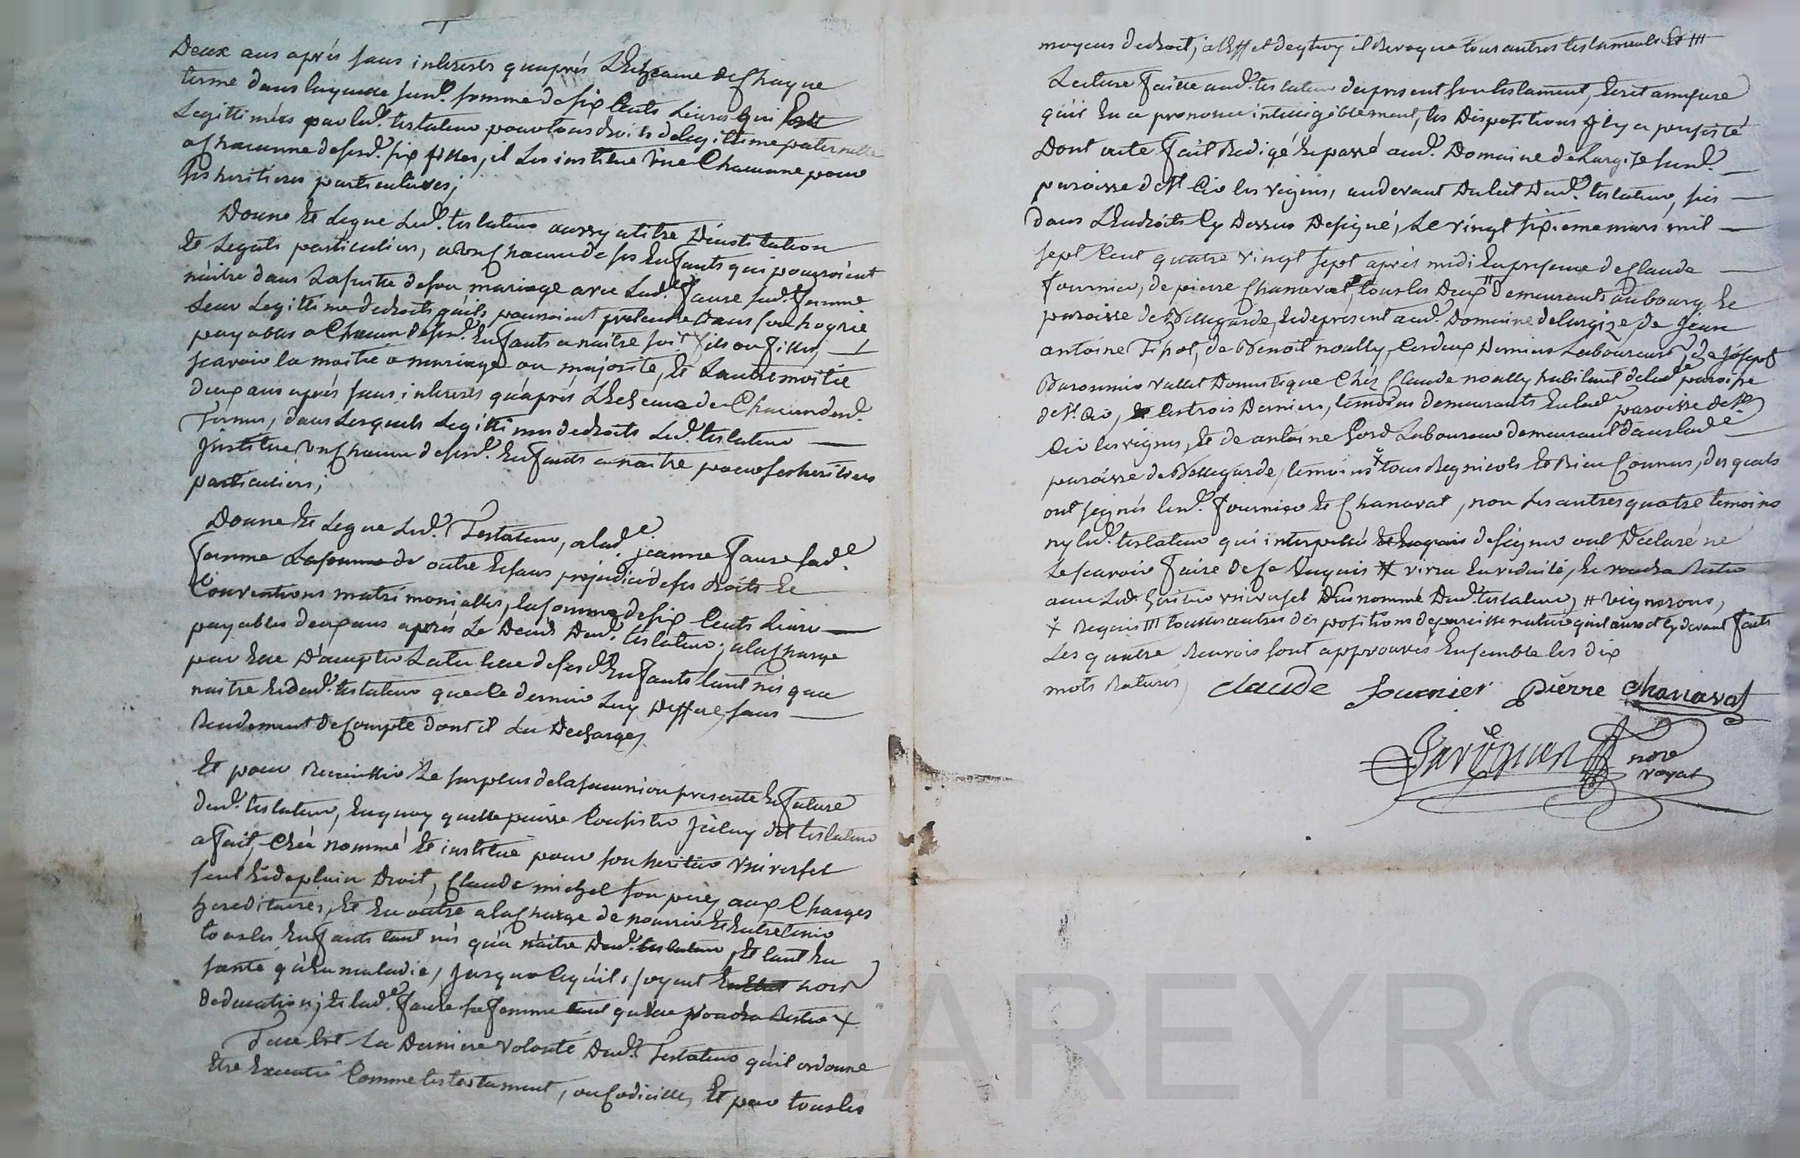 Deux ans après sans interests qu'aprés L'Echeance de Chaque
terme dans laquelle susd. somme de six Cents Livres qui Est
Legittimées par led. testateur pour tous droits de legitime paternelle
a chacunne desd. six filles, il Les institue Une Chacunne pour
ses heritieres particulieres;
Donne Et Legue Led. testateur aussy a titre D'institution
Et Legats particuliers, a Un chacun de ses Enfants qui pourroient
naitre dans La suite de son mariage avec Lad. faure sad. femme
Leur Legittime de droits qu'ils pourroient pretendre Dans son hoyrie
payables a Chacun desd. Enfants a naitre soit fils ou filles,
scavoir la moitié a mariage ou majorité, Et L'autre moitié
deux ans après sans interests qu'aprés L'Echeance de Chacun desd.
Termes, dans Lesquels Legittimes de droits Led. testateur
Institue Un chacun desd. Enfants a naitre pour ses heritiers
particuliers;
Donne Et Legue Led. Testateur, a lad. jeanne faure sad.
femme La somme de outre Et sans prejudice de ses droits Et
Conventions matrimonialles, la somme de six Cents Livres
payables deux ans après Le Decés Dud. testateur; a la charge
par Elle D'accepter La tutelle de sesd. Enfants tant nés qu'a
naitre Et dud. testateur que Ce dernier Luy Deffere, sans
Rendement de Compte dont il La Decharge;
Et pour Recueillir Le surplus de la succession presente Et future
dud. testateur, En quoy qu'elle puisse Consister Icelluy dit testateur
a fait, Créé nommé Et institué pour son heritier Universel
seul Et de plain Droit, Claude michel son pere, aux Charges
hereditaires, Et En outre a la charge de nourrir Et Entretenir
tous les Enfants tant nés qu'a naitre Dud. testateur, Et tant En
santé qu'En maladie, jusqua Ce qu'ils soyent Enétat hors
d'education; Et lad. faure sa femme tant qu'Elle voudra Rester X
Telle Est La Derniere volonté Dud. Testateur qu'il ordonne
Etre Executée Comme testament, ou Codicille, Et par tous les
moyens de droit; a L'Effet de quoy il Revoque tous autres testaments Et III
Lecture faitte aud. testateur du present son testament, Ecrit amesure
qu'il En a prononcé intelligiblement, les Dispositions Il y a persisté
Dont acte fait Redigé Et passé aud. Domaine de Largize susd.
paroisse de St Cir les vignes, au devant Du lit Dud. testateur, sis
dans L'Endroit Cy Dessus Designé, Le vingt sixieme mars mil
sept Cent quatre vingt sept après midi En presence de Claude
fournier, de pierre Chanavat, tous les Deux demeurants au bourg Et
paroisse de Bellegarde, Et de present aud. Domaine de Largize, de Jean
antoine Tipot, de Benoit noally, Ces deux Derniers Laboureurs, de Joseph
vallet Domestique Chés Claude noally habitant de lad. paroisse
de St. Cir, Et Les trois Derniers, témoins demeurants En lad. paroisse de St.
Cir les vignes, Et de antoine Laboureur demeurant dans lad.
paroisse de Bellegarde, temoins X tous Regnicols Et Bien Connus, desquels
ont signés lesd. fournier Et Chanavat, non Les autres quatre temoins
ny led. testateur qui interpellé Et Requis de signer ont Declaré ne
Le scavoir faire de ce Enquis # vivra En viduité, Et voudra Rester
avec Led. heritier universel Dernommé Dud. testateur, # vignerons,
X Requis III touttes autres dispositions de pareille nature qu'il auroit Cy devant faits
Les quatre Renvois sont approuvés Ensemble les dix
mots Raturés,
claude fournier pierre chanavat
nore
royal